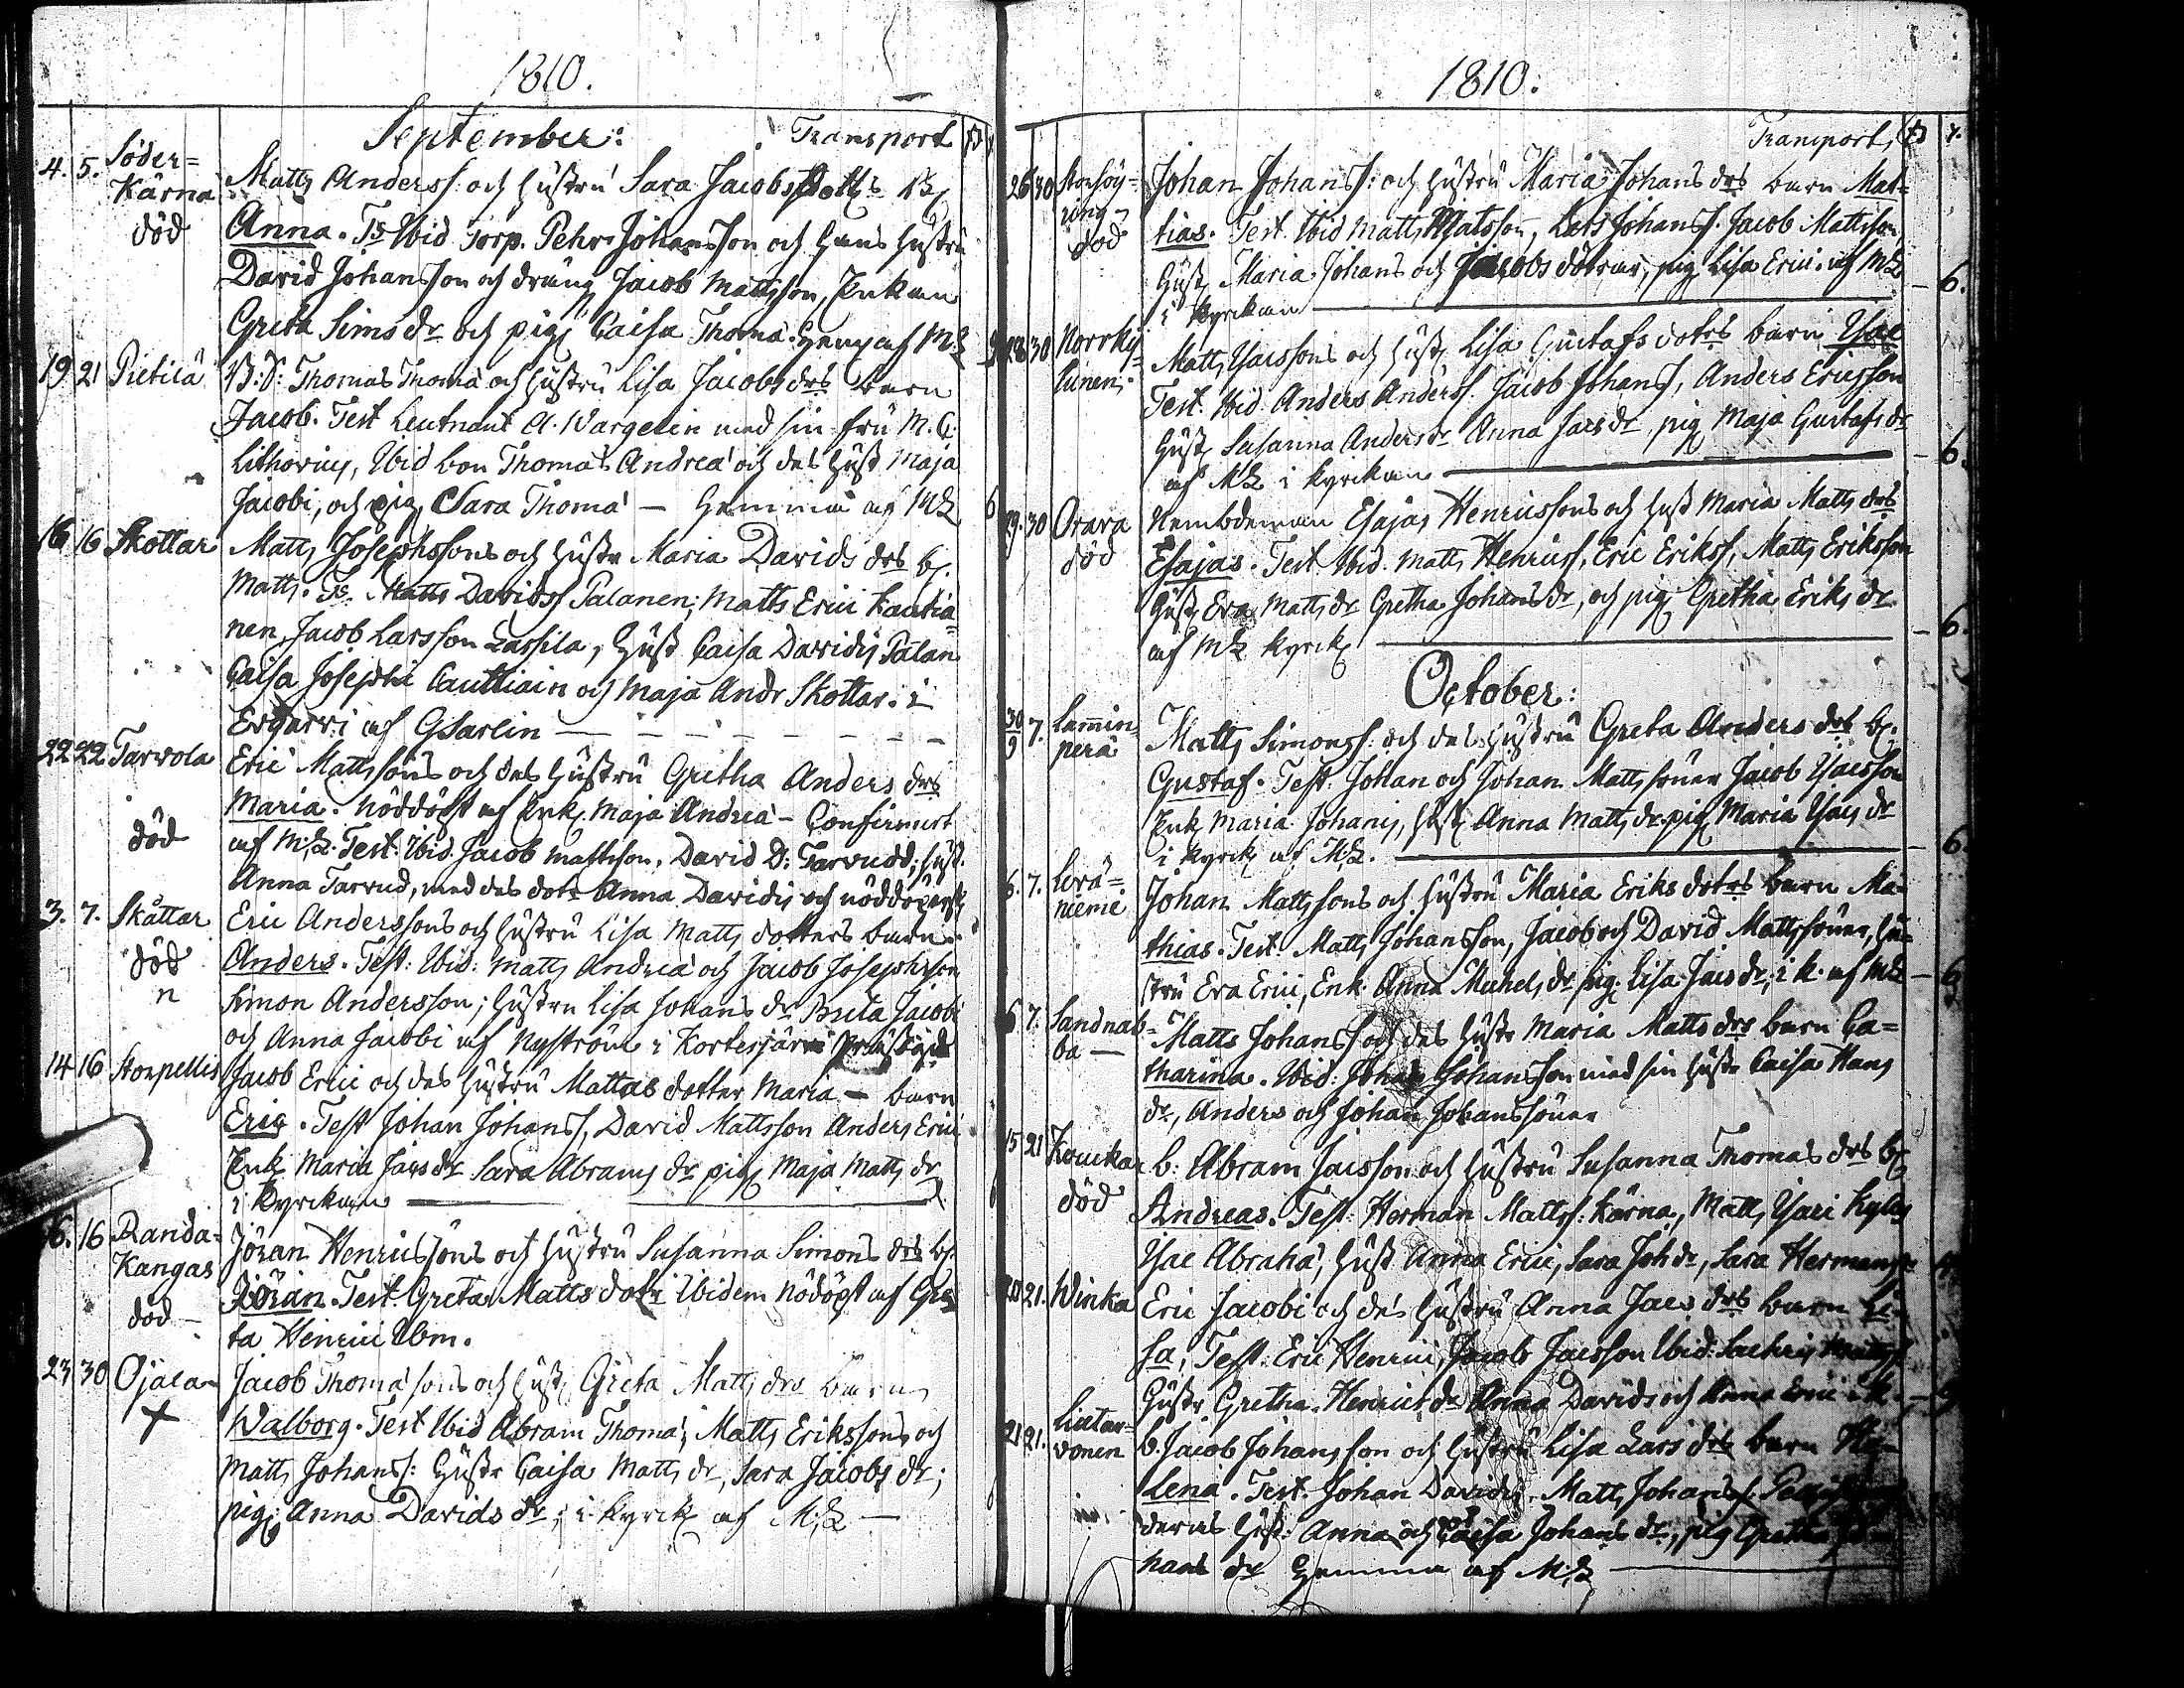 1810.
September: Transport
4. 5. Söder= Matts Anderss: och hustru Sara Jacobs
Kärna
död Anna. Ts Ibid Torp. Pehr Johansson och hans hustru
David Johansson och dräng Jacob Mattsson, Enkan
Greta Simsdr och pig Caisa Thomæ. Hem af MZ
19 21 Pietilä B:S: Thomas Thomæ och hustru Lisa Jacobs drs barn
Jacob. Test Leutnant A. Wargelin med sin fru M. C.
Lithovius, Ibid bon Thomas Andreæ och des hust Maja
Jacobi, och pig Clara Thomæ — Hemma af MZ 6
16 16 Skottar Matts Josephssons och hustr Maria Davids drs b.
Matts. Ts. Matts Davidss Palanen; Matts Erici Kautia=
nen, Jacob Larsson Lassila, hust Caisa Davidis Palan
Caisa Josephi Cauttiain och Maja Andr Skottar. i
Ev af GSarlin
22 22 Tarvola Eric Mattssons och des hustru Gretha Anders drs
Maria. Nöddöpt af Enk. Maja Andreæ — Confirmert
död af M.Z. Test. Ibid. Jacob Mattsson. David D: Tarvudd; hust.
Anna Tarvud, med des dotr Anna Davidis och nöddöpersk
3. 7. Skåttar Eric Anderssons och hustru Lisa Matts dotters barn
död Anders. Test: Ibid: Matts Andreæ och Jacob Josephsson
n Simon Andersson; hustru Lisa Johans dr Brita Jacobi
och Anna Jacobi af Nyström i Kortesjärvi
14 16 Storpellis Jacob Erici och des hustru Mattas dotter Maria — barn
Eric. Test Johan Johanss, David Mattsson Anders Erici
Enk Maria Jacsdr Sara Abrams dr pig Maja Matts dr
i kyrckan
16. 16 Randa= Jöran Henricssons och hustru Susanna Simons drs b.
Kangas Jöran. Test. Greta Matts dotr Ibidem nödöpt af Gre
död — ta Henrici Ibm.
23 30 Ojala Jacob Thomæ sons och hust Greta Matts drs barn
+ Walborg. Test Ibid Abram Thomæ, Matts Erikssons och
Matts Johanss: hustr Caisa Matts dr, Sara Jacobs dr;
pig: Anna Davids dr; i kyrck af M.Z —
1810.
Transport
26 30 Johan Johanss: och hustru Maria Johans drs barn Mat=
död tias. Test. Ibid Matts Matsson, Lars Johanss. Jacob Mattsson
hust Maria Johans och Jacobs döttrar, pig Lisa Erici. af MZ
i kyrckan — 6.
28 30 Norrky= Matts Jsacssons och hust Lisa Gustafs dotrs barn Jsac
Test. Ibid. Anders Anderss. Jacob Johanss, Anders Ericsson
hust Susanna Andersdr Anna Jacs dr pig Maja Gustafs dr
af MZ i kyrckan — 6.
29. 30 Orava Nembdeman Esajas Henricssons och hust Maria Matts drs
död Esajas. Test. Ibid. Matts Henricss, Eric Erikss, Matts Eriksson
hust Eva Matts dr Gretha Johans dr, och pig Gretha Eriks dr
af MZ kyrck — 6.
October:
30/9 7. Lamin= Matts Simonss: och des hustru Greta Anders drs b.
perä Gustaf. Test. Johan och Johan Matts söner Jacob Jsacsson
Enk Maria Johanis, hust Anna Matts dr pig Maria Jsacs dr
i kyrck af M.Z. — 6.
6. 7. Levä= Johan Mattssons och hustru Maria Eriks dotrs barn Ma=
niemi thias. Test. Matts Johansson, Jacob och David Mattssöner, hu=
stru Eva Erici, Enk. Anna Michels dr pig. Lisa Jacs dr; i k. af MZ — 6
6. 7. Sandnab= Matts Johanss och des hustr Maria Matts drs barn Ca=
ba — tharina. Ibid: Johan Johansson med sin hustr Caisa Hans
dr, Anders och Johan Johanssöner
15 21 b. Abram Jacsson och hustru Susanna Thomas drs b
död Andreas. Test. Herman Mattss: Kärna, Matts
Jsac Abrahæ, hust Anna Erici, Sara Joh dr, Sara Hermans
20 21. Winka Eric Jacobi och des hustru Anna Jacs drs barn Li=
sa; Test. Eric Henrici, Jacob Jacsson Ibid:
hustr Gretha Henricsdr Anna Davids och Anna Erici
21 21. Liutar= b. Jacob Johansson och hustru Lisa Lars drs barn He=
vonen lena. Test. Johan Davidss, Matts Johanss.
deras hust: Anna och Caisa Johans dr, pig Gretha Jo=
hans dr Hemma af M.Z